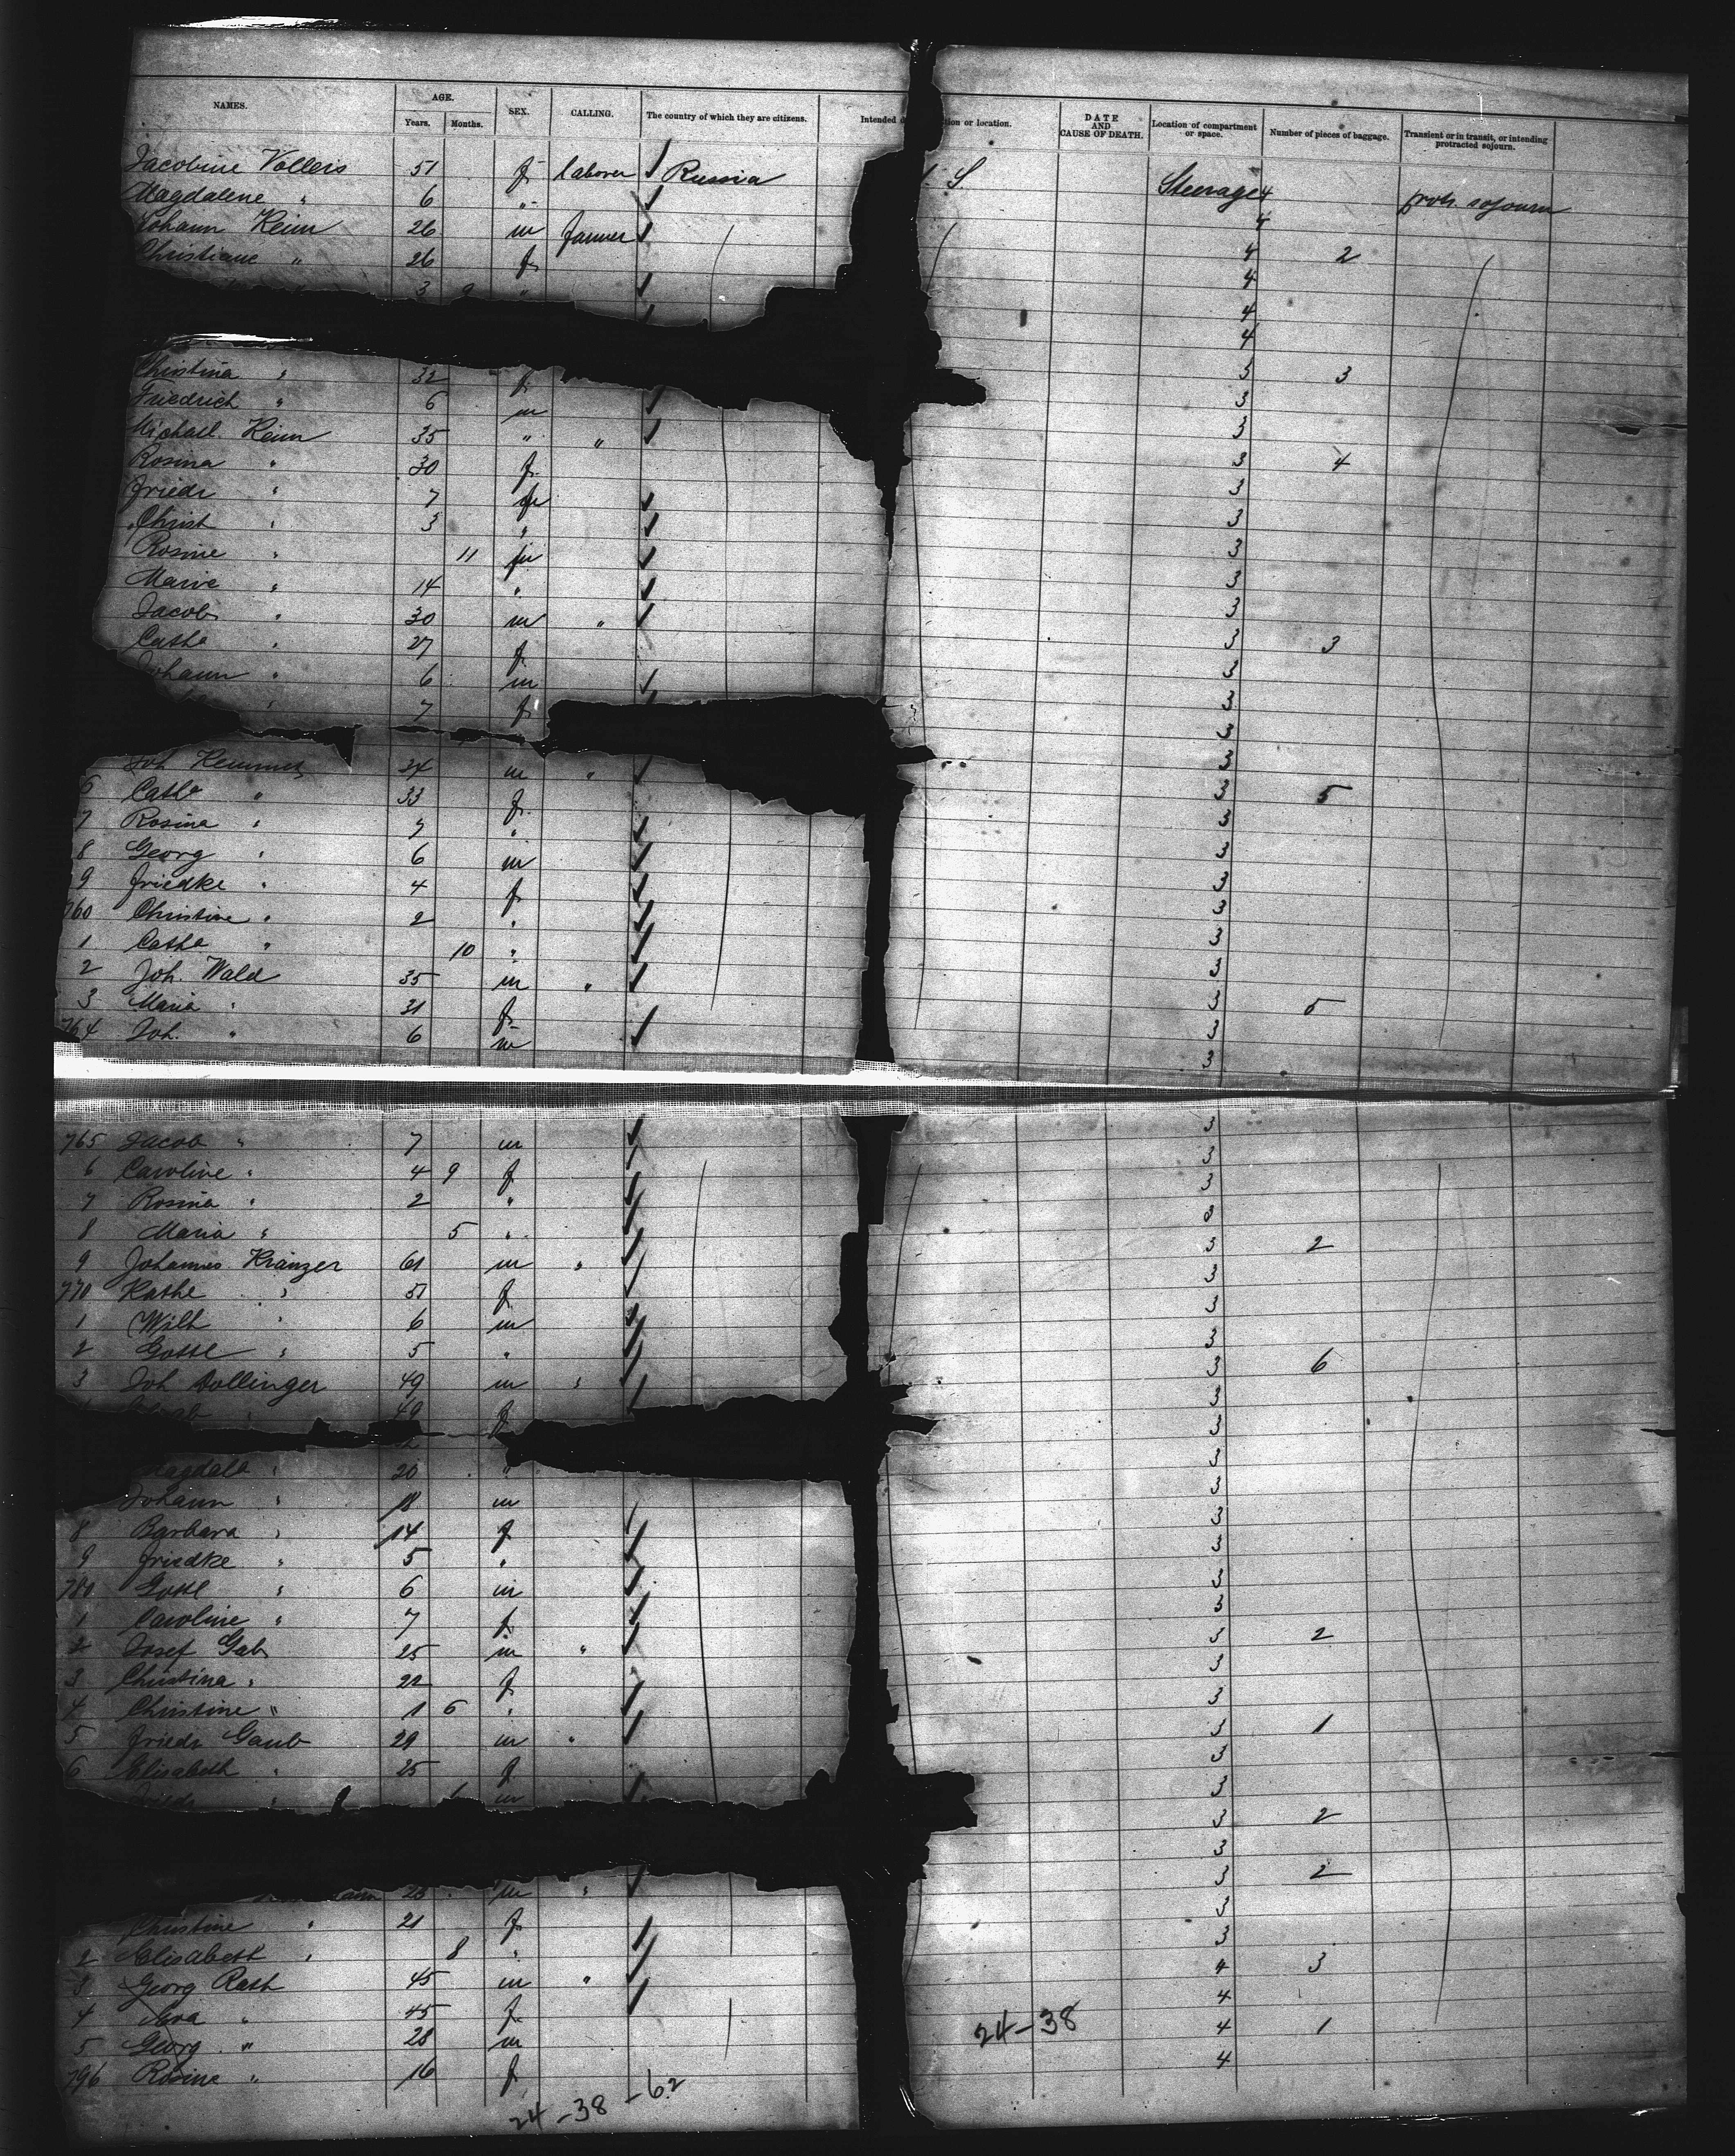 NAMES. AGE. SEX. CALLING. The country of which they are citizens. Intended tion or location. DATE AND CAUSE OF DEATH. Location of compartment or space. Number of pieces of baggage. Transient or in transit, or intending protracted sojourn.
Years. Months.
Jacobine Vollers 51 f laborer Russia S Steerage 4 protr sojourn
Magdalene " 6 " 4
Johann Keim 26 m farmer 4 2
Christiane " 26 f 4
3 9 " 4
4
Christina " 32 f 3 3
Friedrich " 6 m 3
Michael Keim 35 " " 3
Rosina " 30 f 3 4
Friedr " 7 3
Christ " 3 " 3
Rosine " 11 3
Marie " 14 " 3
Jacob " 30 m " 3
Cathe " 27 f 3 3
Johann " 6 m 3
" 7 f 3
3
Joh 34 m " 3
6 Cathe " 33 f 3 5
7 Rosina " 7 " 3
8 Georg " 6 m 3
9 Friedke " 4 f 3
760 Christine " 2 " 3
1 Cathe " 10 " 3
2 Joh. Wald 35 m " 3
3 Maria " 31 f 3 5
764 Joh. " 6 m 3
3
765 Jacob " 7 m 3
6 Caroline " 4 9 f 3
7 Rosina " 2 " 3
8 Maria " 5 " 3
9 Johannes Kranzer 61 m " 3 2
770 Kathe " 51 f 3
1 Wilh " 6 m 3
2 Gottl " 5 " 3
3 Joh Dollinger 49 m " 3 6
" 49 f 3
3
Magdale " 20 " 3
Johann " 18 m 3
8 Barbara " 14 f 3
9 Friedke " 5 " 3
780 Gottl " 6 m 3
1 Caroline " 7 f 3
2 Josef Gab 25 m " 3 2
3 Christina " 22 f 3
4 Christine " 1 6 " 3
5 Friedr Gaub 29 m " 3 1
6 Elisabeth " 25 f 3
" 1 m 3
3 2
3
23 m " 3 2
Christine " 21 f 3
2 Elisabeth " 8 " 3
3 Georg Rath 45 m " 4 3
4 Eva " 45 f 4
5 Georg " 28 m 4 1
796 Rosine " 16 f 4
24-38
24-38-62